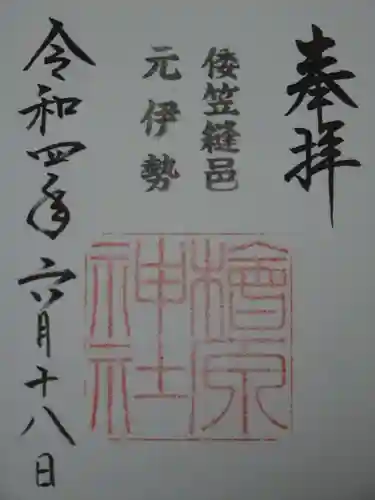 奉拝
倭笠縫邑
元伊勢
檜原
神社
令和四年六月十八日